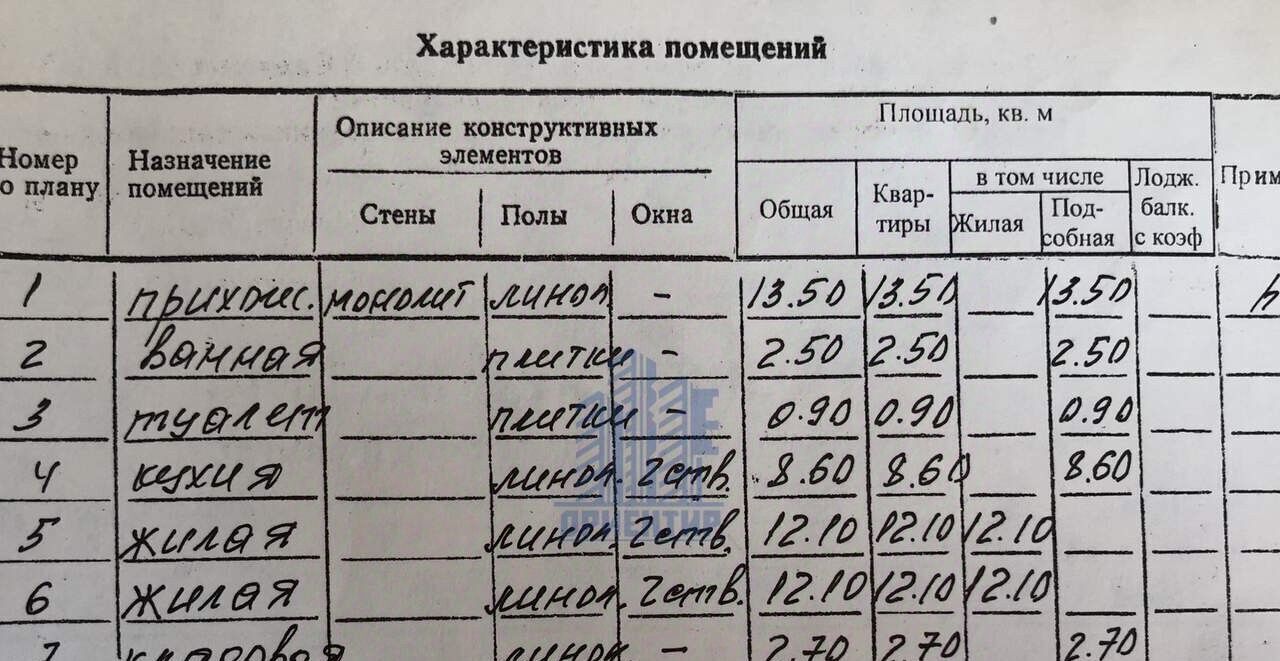 Характеристика помещений
Номер о плану Назначение помещений Описание конструктивных элементов Площадь, кв. м Прим
Стены Полы Окна Общая Квар-тиры в том числе Лодж. балк. с коэф
Жилая Под-собная
1 прихож. монолит линол - 13.50 13.50 13.50
2 ванная плитки - 2.50 2.50 2.50
3 туалет плитки - 0.90 0.90 0.90
4 кухня линол. 2 ств. 8.60 8.60 8.60
5 жилая линол. 2 ств. 12.10 12.10 12.10
6 жилая линол. 2 ств. 12.10 12.10 12.10
7 кладовая линол - 2.70 2.70 2.70
ОРИЕНТИР